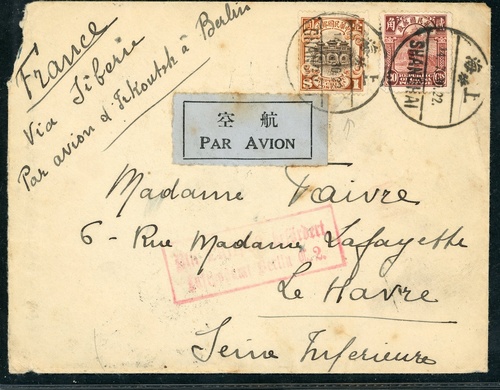 France
Via Siberie
Par avion d'Irkoutsk à Berlin
空 航
PAR AVION
上海
SHANGHAI
22
Madame Faivre
6 - Rue Madame Lafayette
Le Havre
Seine Inferieure
Berlin C. 2.